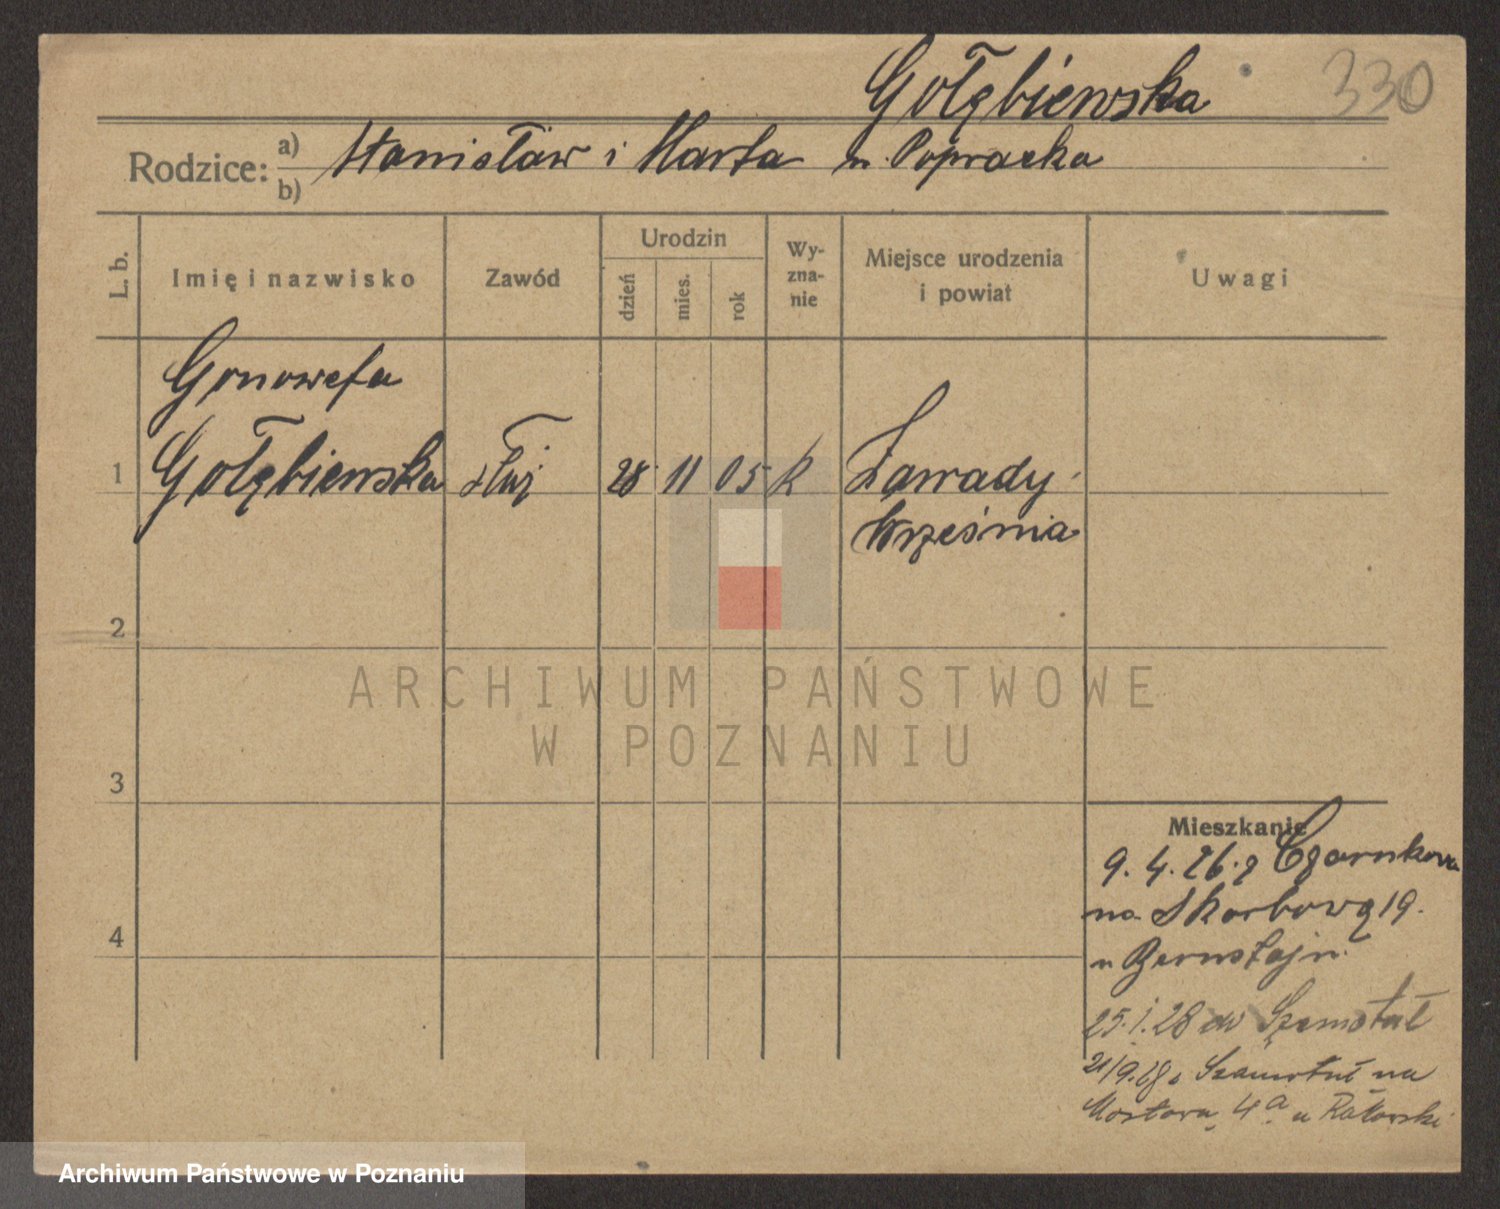 Gołębiewska 330
Rodzice: a) b) Stanisław i Marta u. Popracka
L. b. Imię i nazwisko Zawód Urodzin dzień mies. rok Wy-zna-nie Miejsce urodzenia i powiat Uwagi
Gonowefa
1 Gołębiewska służ 28 11 05 k Zawady
Września
2
ARCHIWUM PAŃSTWOWE
W POZNANIU
3
Mieszkanie
9. 4. 26. z Czarnkowa
na Skarbową 19.
4
u Bernstajn
25. 1. 28 do Szamotuł
21/9.28 z Szamotuł na
Mostową 4a u Ratowski
Archiwum Państwowe w Poznaniu